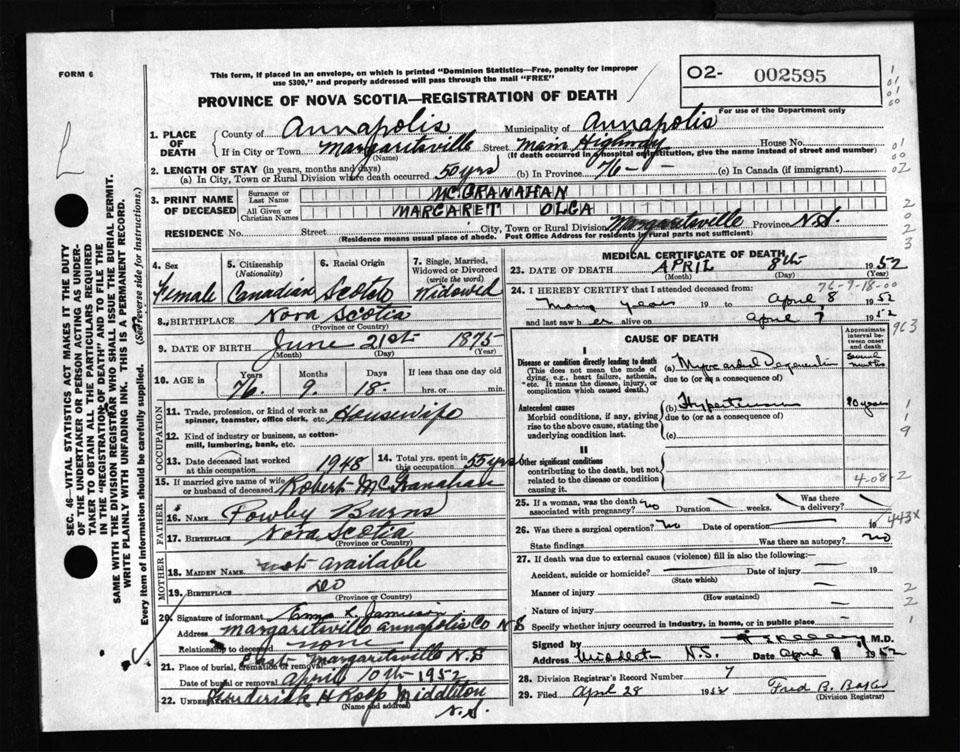 FORM 6
This form, if placed in an envelope, on which is printed "Dominion Statistics—Free, penalty for improper
use $300," and properly addressed will pass through the mail "FREE"
PROVINCE OF NOVA SCOTIA—REGISTRATION OF DEATH
02- 002595
For use of the Department only
1. PLACE OF DEATH
County of Annapolis Municipality of Annapolis
If in City or Town Margaritsville Street Main Highway House No.
(Name) (If death occurred in a hospital or institution, give the name instead of street and number)
2. LENGTH OF STAY (in years, months and days)
(a) In City, Town or Rural Division where death occurred 50 yrs (b) In Province 76 (c) In Canada (if immigrant)
3. PRINT NAME OF DECEASED
Surname or Last Name McGRANAHAN
All Given or Christian Names MARGARET OLGA
RESIDENCE No. Street City, Town or Rural Division Margaritsville Province N.S.
(Residence means usual place of abode. Post Office Address for residents in rural parts not sufficient)
SEC. 46—VITAL STATISTICS ACT MAKES IT THE DUTY
OF THE UNDERTAKER OR PERSON ACTING AS UNDER-
TAKER TO OBTAIN ALL THE PARTICULARS REQUIRED
IN THE "REGISTRATION OF DEATH" AND TO FILE THE
SAME WITH THE DIVISION REGISTRAR WHO SHALL ISSUE THE BURIAL PERMIT.
WRITE PLAINLY WITH UNFADING INK. THIS IS A PERMANENT RECORD.
Every item of information should be carefully supplied. (See reverse side for instructions.)
4. Sex Female
5. Citizenship (Nationality) Canadian
6. Racial Origin Scotch
7. Single, Married, Widowed or Divorced (write the word) Widowed
8. BIRTHPLACE Nova Scotia
(Province or Country)
9. DATE OF BIRTH June 21st 1875
(Month) (Day) (Year)
10. AGE in Years 76 Months 9 Days 18 If less than one day old hrs. or min.
OCCUPATION
11. Trade, profession, or kind of work as spinner, teamster, office clerk, etc. Housewife
12. Kind of industry or business, as cotton-mill, lumbering, bank, etc.
13. Date deceased last worked at this occupation 1948
14. Total yrs. spent in this occupation 55 yrs
15. If married give name of wife or husband of deceased Robert McGranahan
FATHER
16. NAME Burns
17. BIRTHPLACE Nova Scotia
(Province or Country)
MOTHER
18. MAIDEN NAME not available
19. BIRTHPLACE Do
(Province or Country)
20. Signature of informant Emma L. Jamieson
Address Margaritsville Annapolis Co N S
Relationship to deceased none
21. Place of burial, cremation or removal East Margaritsville N.S
Date of burial or removal April 10th 1952
22. UNDERTAKER Frederick H Roop Middleton
(Name and address) N.S.
MEDICAL CERTIFICATE OF DEATH
23. DATE OF DEATH APRIL 8th 1952
(Month) (Day) (Year)
76-9-18-00
24. I HEREBY CERTIFY that I attended deceased from:
many years 19 to April 8 1952
and last saw her alive on April 7 1952
CAUSE OF DEATH
Approximate interval between onset and death
I
Disease or condition directly leading to death
(This does not mean the mode of dying, e.g., heart failure, asthenia, etc. It means the disease, injury, or complication which caused death.)
(a) Myocardial Several months
due to (or as a consequence of)
Antecedent causes
Morbid conditions, if any, giving rise to the above cause, stating the underlying condition last.
(b) Hypertension 10 years
due to (or as a consequence of)
(c)
II
Other significant conditions
contributing to the death, but not related to the disease or condition causing it.
4-08-2
25. If a woman, was the death associated with pregnancy? no Duration weeks. Was there a delivery?
26. Was there a surgical operation? No Date of operation 19
443X
State findings Was there an autopsy? no
27. If death was due to external causes (violence) fill in also the following:—
Accident, suicide or homicide? Date of injury 19
(State which)
Manner of injury
(How sustained)
Nature of injury
Specify whether injury occurred in industry, in home, or in public place
Signed by M.D.
Address Middleton N.S. Date April 9 1952
28. Division Registrar's Record Number 7
29. Filed April 28 1952 Fred B.
(Division Registrar)